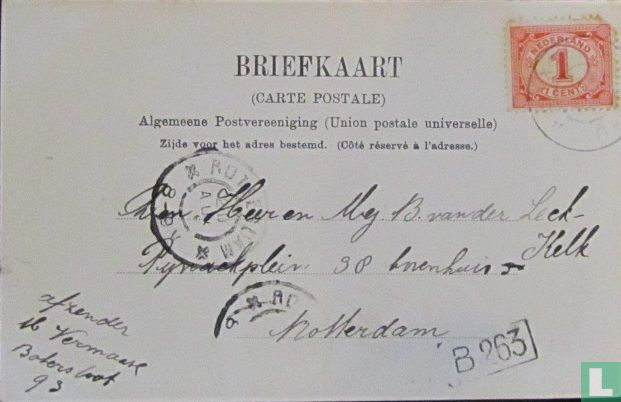 BRIEFKAART
(CARTE POSTALE)
Algemeene Postvereeniging (Union postale universelle)
Zijde voor het adres bestemd. (Côté réservé à l'adresse.)
NEDERLAND
1
1 CENT
ROTTERDAM
Heer en Mej B. van der Leck-
Kelk
38 bovenhuis
Rotterdam
ROT
B 263
afzender
Vermaase
93
L